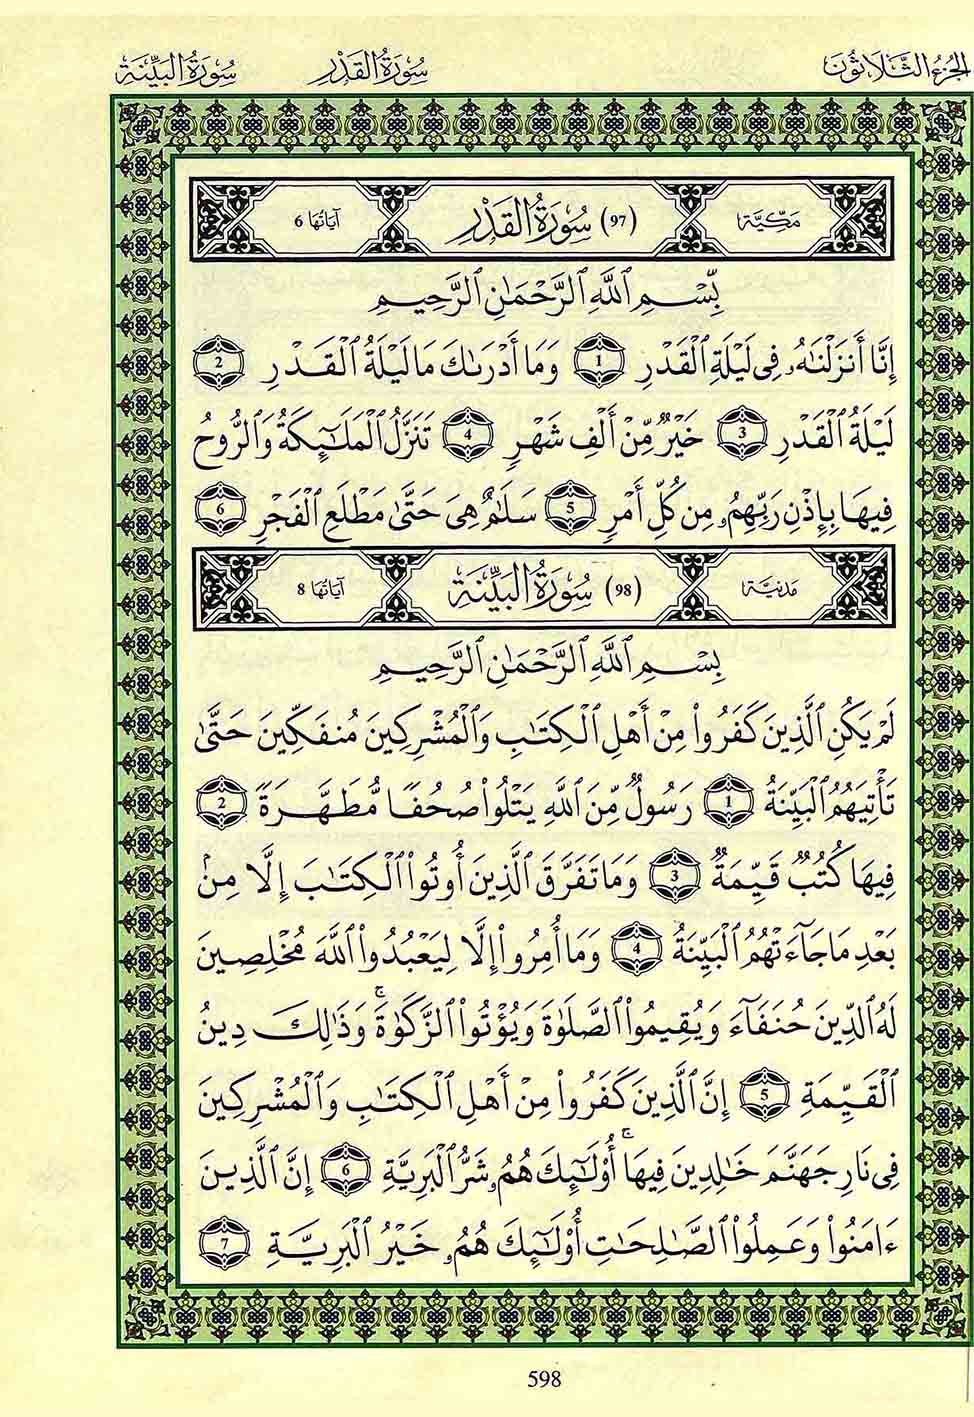 الجزء الثلاثون سورة القدر سورة البينة
مكية (97) سورة القدر آياتها 6
بِّسْمِ ٱللَّهِ ٱلرَّحْمَٰنِ ٱلرَّحِيمِ
إِنَّا أَنزَلْنَٰهُۥ فِى لَيْلَةِ ٱلْقَدْرِ 1 وَمَا أَدْرَىٰكَ مَا لَيْلَةُ ٱلْقَدْرِ 2
لَيْلَةُ ٱلْقَدْرِ 3 خَيْرٌ مِّنْ أَلْفِ شَهْرٍ 4 تَنَزَّلُ ٱلْمَلَٰٓئِكَةُ وَٱلرُّوحُ
فِيهَا بِإِذْنِ رَبِّهِمُۥ مِن كُلِّ أَمْرٍ 5 سَلَٰمٌ هِىَ حَتَّىٰ مَطْلَعِ ٱلْفَجْرِ 6
مدنية (98) سورة البينة آياتها 8
بِسْمِ ٱللَّهِ ٱلرَّحْمَٰنِ ٱلرَّحِيمِ
لَمْ يَكُنِ ٱلَّذِينَ كَفَرُوا۟ مِنْ أَهْلِ ٱلْكِتَٰبِ وَٱلْمُشْرِكِينَ مُنفَكِّينَ حَتَّىٰ
تَأْتِيَهُمُ ٱلْبَيِّنَةُ 1 رَسُولٌ مِّنَ ٱللَّهِ يَتْلُوا۟ صُحُفًا مُّطَهَّرَةً 2
فِيهَا كُتُبٌ قَيِّمَةٌ 3 وَمَا تَفَرَّقَ ٱلَّذِينَ أُوتُوا۟ ٱلْكِتَٰبَ إِلَّا مِنۢ
بَعْدِ مَا جَآءَتْهُمُ ٱلْبَيِّنَةُ 4 وَمَا أُمِرُوا۟ إِلَّا لِيَعْبُدُوا۟ ٱللَّهَ مُخْلِصِينَ
لَهُ ٱلدِّينَ حُنَفَآءَ وَيُقِيمُوا۟ ٱلصَّلَوٰةَ وَيُؤْتُوا۟ ٱلزَّكَوٰةَ ۚ وَذَٰلِكَ دِينُ
ٱلْقَيِّمَةِ 5 إِنَّ ٱلَّذِينَ كَفَرُوا۟ مِنْ أَهْلِ ٱلْكِتَٰبِ وَٱلْمُشْرِكِينَ
فِى نَارِ جَهَنَّمَ خَٰلِدِينَ فِيهَا ۚ أُو۟لَٰٓئِكَ هُمُۥ شَرُّ ٱلْبَرِيَّةِ 6 إِنَّ ٱلَّذِينَ
ءَامَنُوا۟ وَعَمِلُوا۟ ٱلصَّٰلِحَٰتِ أُو۟لَٰٓئِكَ هُمُۥ خَيْرُ ٱلْبَرِيَّةِ 7
598